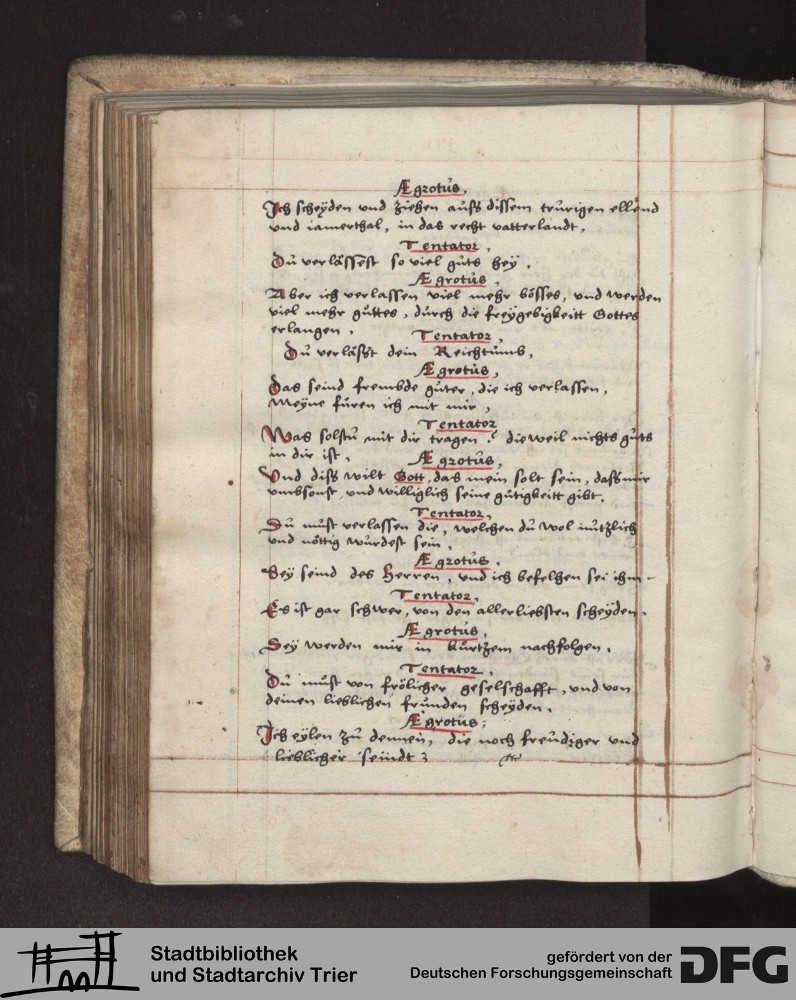 Ægrotus.
Ich scheyden und ziehen auss dissem trurigen ellend
und iamerthal, in das recht vatterlandt.
Tentator,
Du verlässest so viel guts hey.
Ægrotus,
Aber ich verlassen viel mehr bösses, und werden
viel mehr guttes, durch die freygebigkeitt Gottes
erlangen.
Tentator,
Du verlässt dein Reichtumb,
Ægrotus,
Das seind frembde guter, die ich verlassen,
Meyne füren ich mit mir,
Tentator
Was solstu mit dir tragen? dieweil nichts guts
in dir ist,
Ægrotus,
Und diss wilt Gott, das mein solt sein, dass mir
umbsonst, und williglich seine gütigkeitt gibt.
Tentator,
Du must verlassen die, welchen du wol nützlich
und nöttig würdest sein,
Ægrotus,
Sey seind des Herren, und ich befelhen sei ihm.
Tentator,
Es ist gar schwer, von den allerliebsten scheyden.
Ægrotus,
Sey werden mir in kurtzem nachfolgen.
Tentator,
Du must von frölicher geselschafft, und von
deinen lieblichen frunden scheyden,
Ægrotus;
Ich eylen zu dennen, die noch freudiger und
lieblicher seindt
Stadtbibliothek
und Stadtarchiv Trier
gefördert von der
Deutschen Forschungsgemeinschaft
DFG